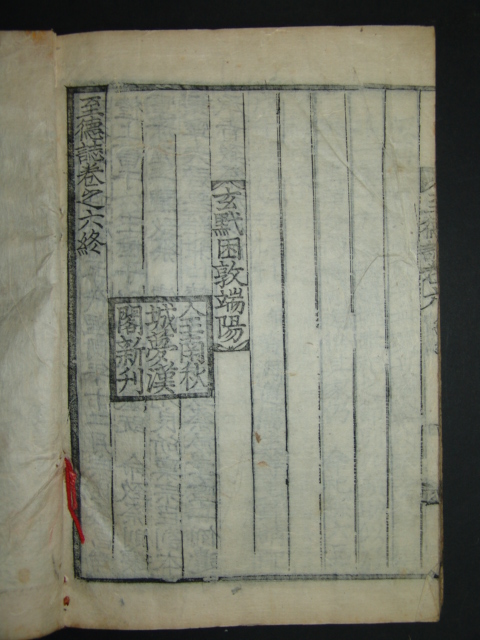 玄黓困敦端陽
全南秋
城夢漢
閣新刊
至德誌卷之六終